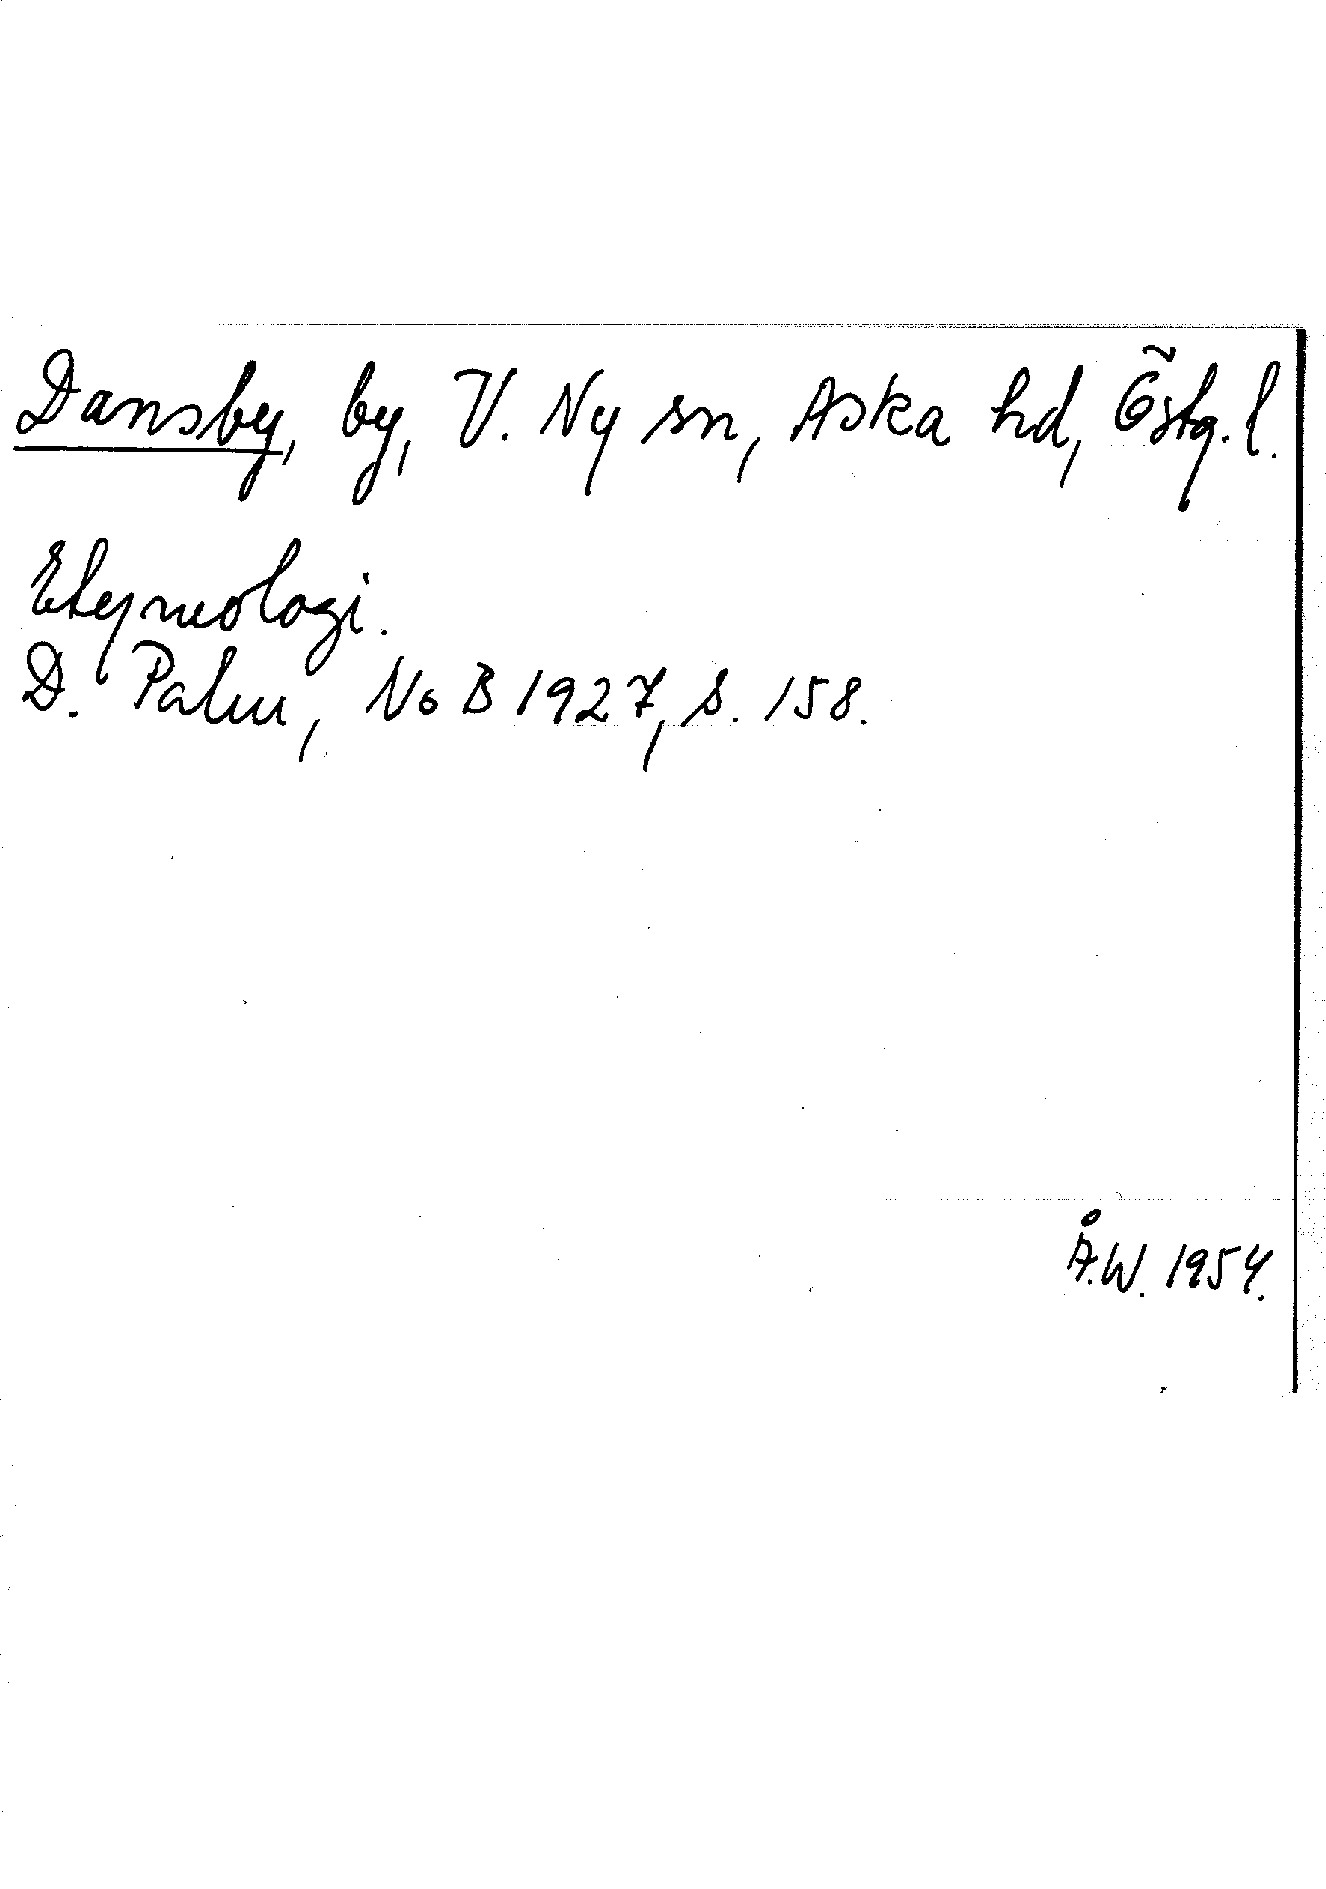 Dansby, by, V. Ny sn, Aska hd, Östg. l.
Etymologi.
D. Palm, NoB 1927, s. 158.
Å.W. 1954.